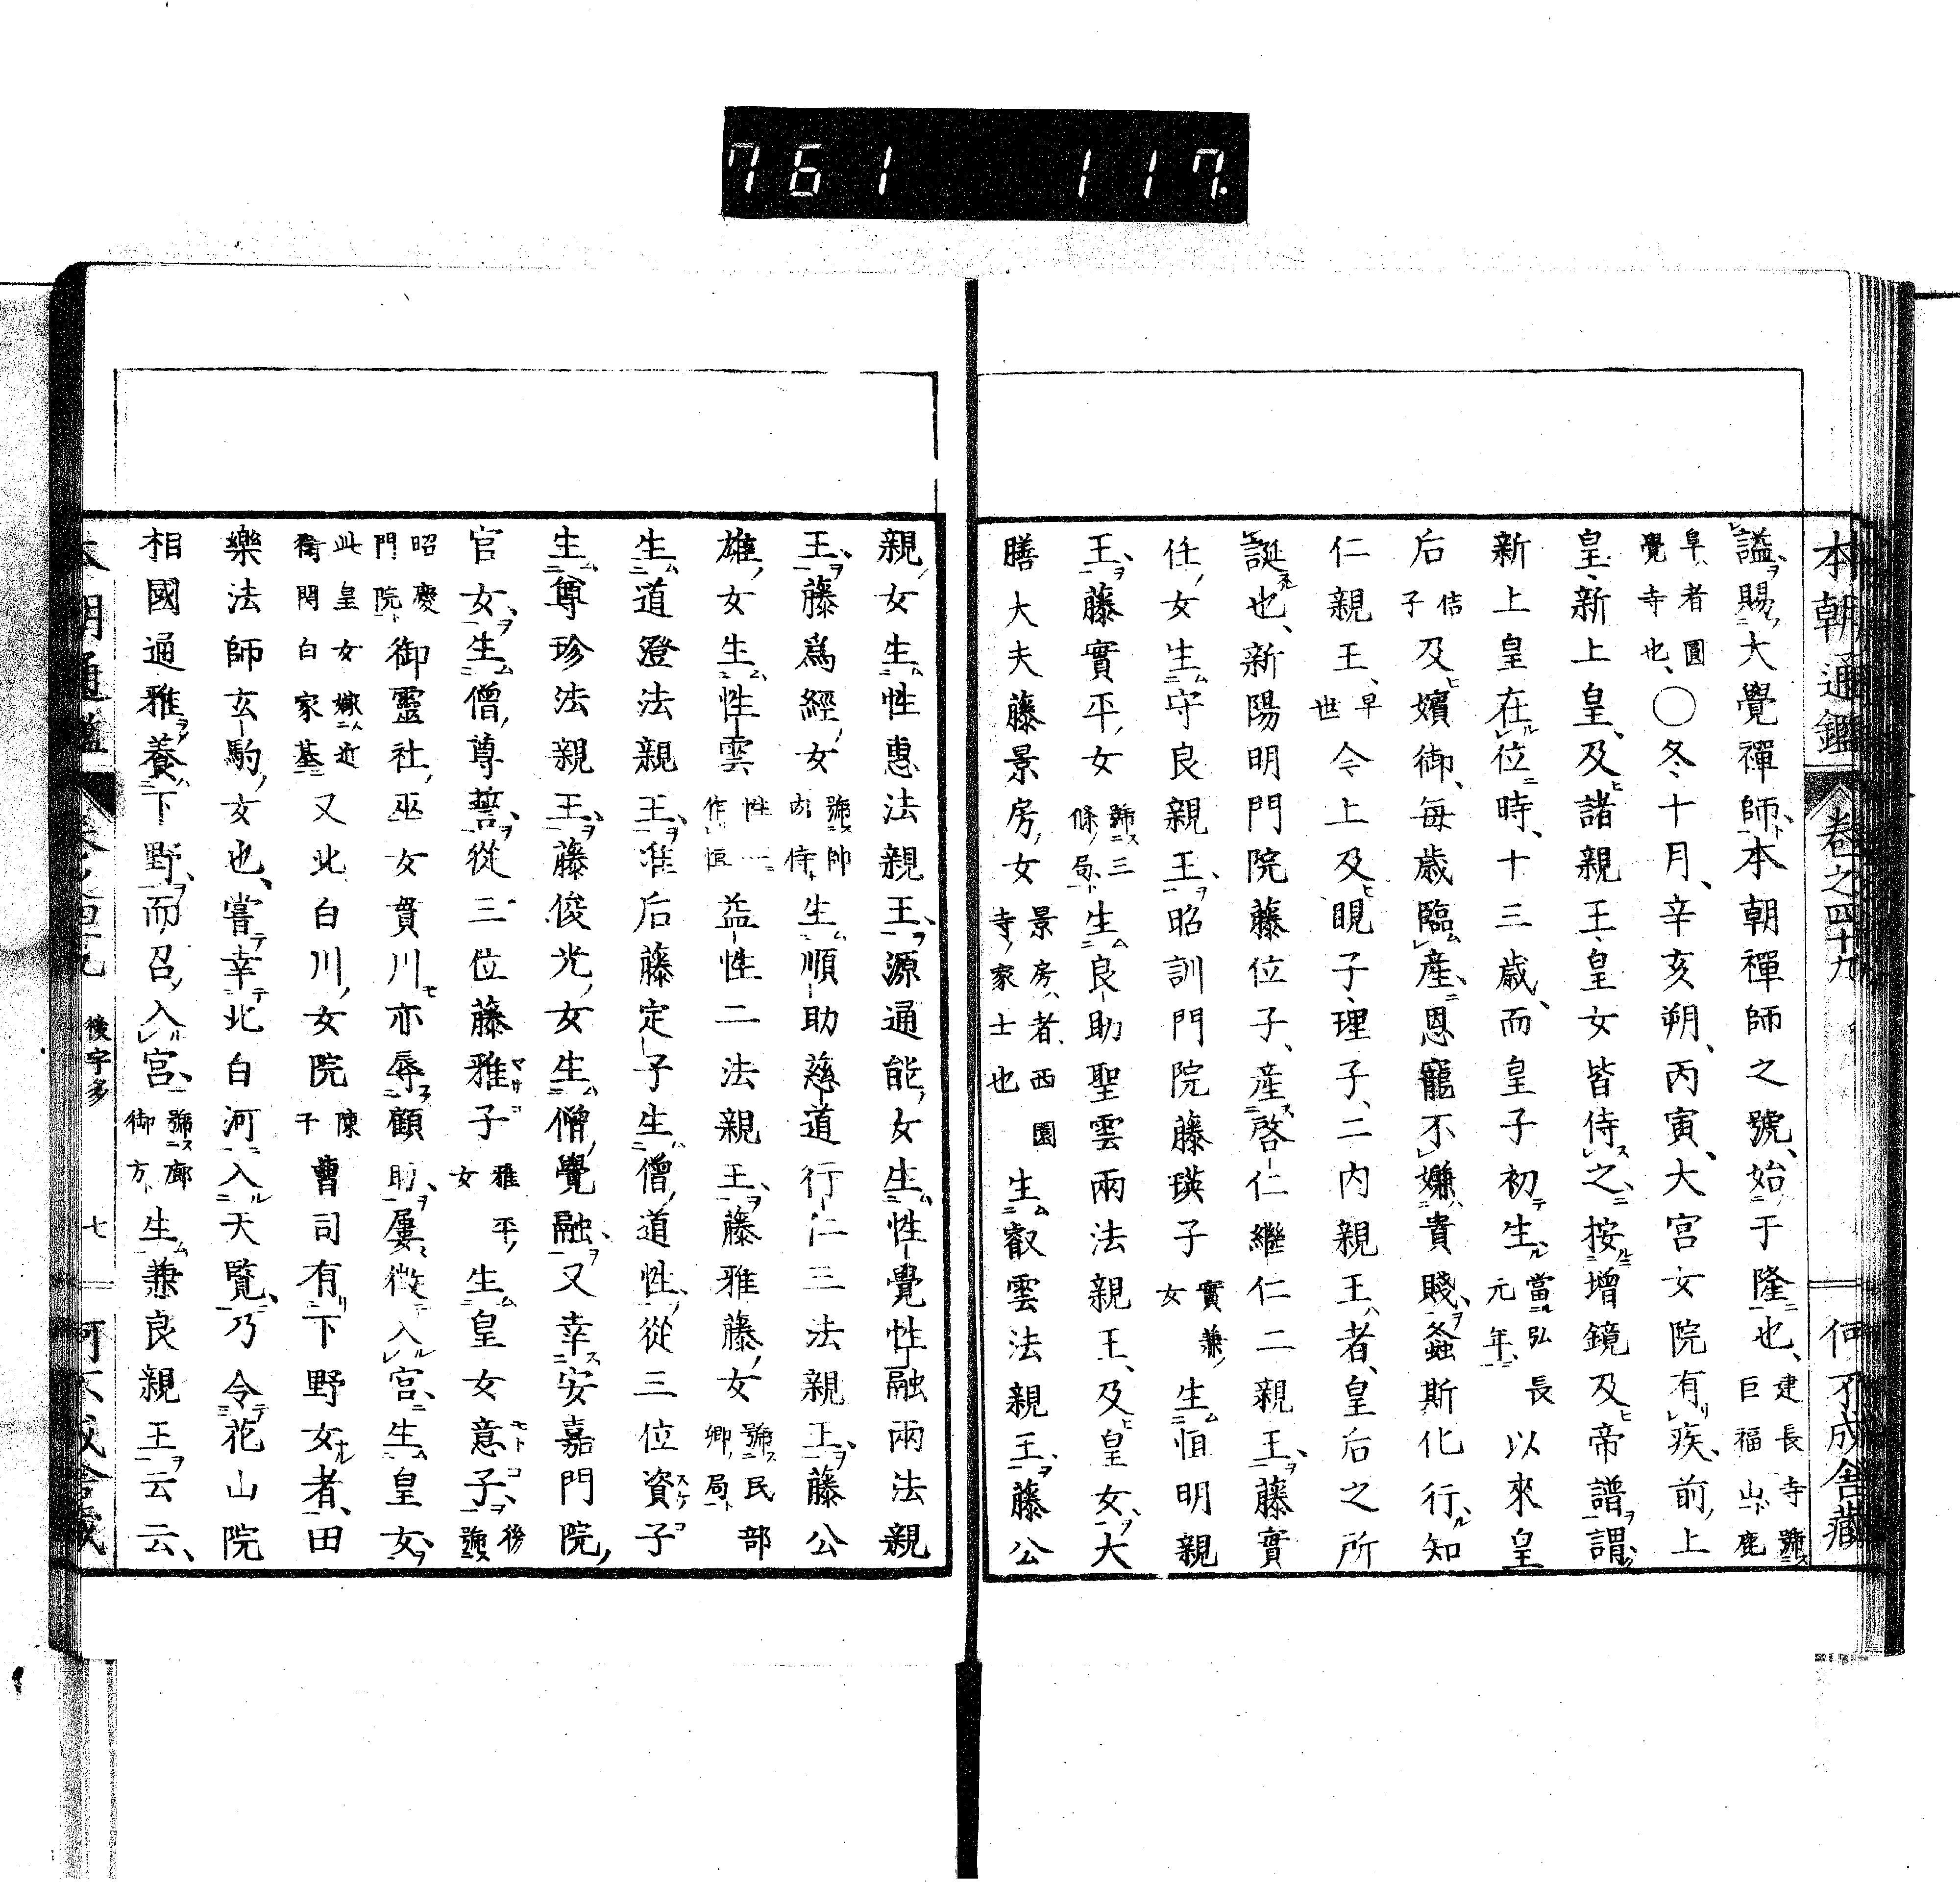 761 117.
本朝通鑑 卷之四十九 何不成舍藏
謚、賜大覺禪師、本朝禪師之號、始于隆也、建長寺號巨福山、鹿
阜、者圓覺寺也、○冬、十月、辛亥朔、丙寅、大宮女院有疾、前上
皇、新上皇、及諸親王、皇女皆侍之、按增鏡及帝譜謂、
新上皇在位時、十三歲、而皇子初生、當弘長元年、以來皇
后佶子及嬪御、每歲臨產、恩寵不嫌貴賤、螽斯化行、知
仁親王、早世令上及晛子、理子、二內親王者、皇后之所
誕也、新陽明門院藤位子、產啓仁繼仁二親王、藤實
任女生守良親王、昭訓門院藤瑛子實兼女生恒明親
王、藤實平女號三條局生良助聖雲兩法親王、及皇女、大
膳大夫藤景房女景房者、西園寺家士也生叡雲法親王、藤公
親女生性惠法親王、源通能女生性覺性融兩法親
王、藤爲經女號帥內侍生順助慈道行仁三法親王、藤公
雄女生性雲性一作恒益性二法親王、藤雅藤女號民部卿局
生道澄法親王、准后藤定子生僧道性、從三位資子
生尊珍法親王、藤俊光女生僧覺融、又幸安嘉門院
官女、生僧尊誓、從三位藤雅子雅平女生皇女意子、後號
昭慶門院御靈社巫女貫川亦辱顧眄、屢徵入宮、生皇女、
此皇女嫁近衛關白家基又北白川女院陳子曹司有下野女者、田
樂法師玄駒女也、嘗幸北白河入天覽、乃令花山院
相國通雅養下野、而召入宮、號廊御方生兼良親王云云、
後宇多 七